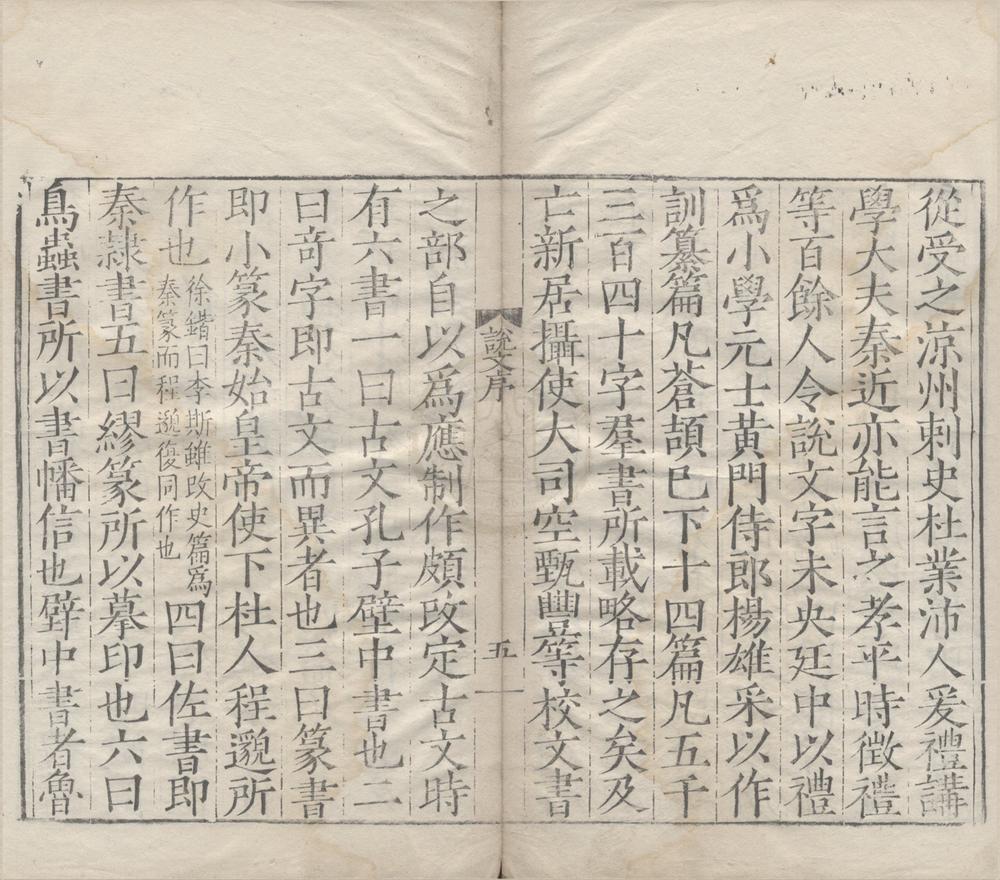 從受之涼州刺史杜業沛人爰禮講
學大夫秦近亦能言之孝平時徵禮
等百餘人令說文字未央廷中以禮
爲小學元士黃門侍郎楊雄采以作
訓纂篇凡蒼頡已下十四篇凡五千
三百四十字羣書所載略存之矣及
亡新居攝使大司空甄豐等校文書
說文序
五
之部自以爲應制作頗改定古文時
有六書一曰古文孔子壁中書也二
曰奇字即古文而異者也三曰篆書
即小篆秦始皇帝使下杜人程邈所
作也
徐鍇曰李斯雖改史篇爲
秦篆而程邈復同作也
四曰佐書即
秦隸書五曰繆篆所以摹印也六曰
鳥蟲書所以書幡信也壁中書者魯